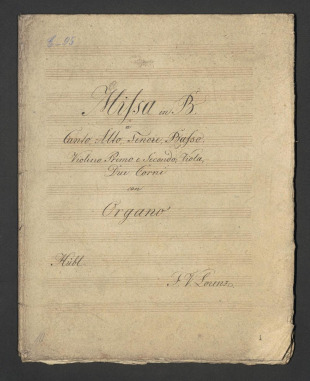 Missa in B.
a
Canto, Alto, Tenore, Basso
Violino Primo e Secondo, Viola,
Due Corni
con
Organo
Mübl